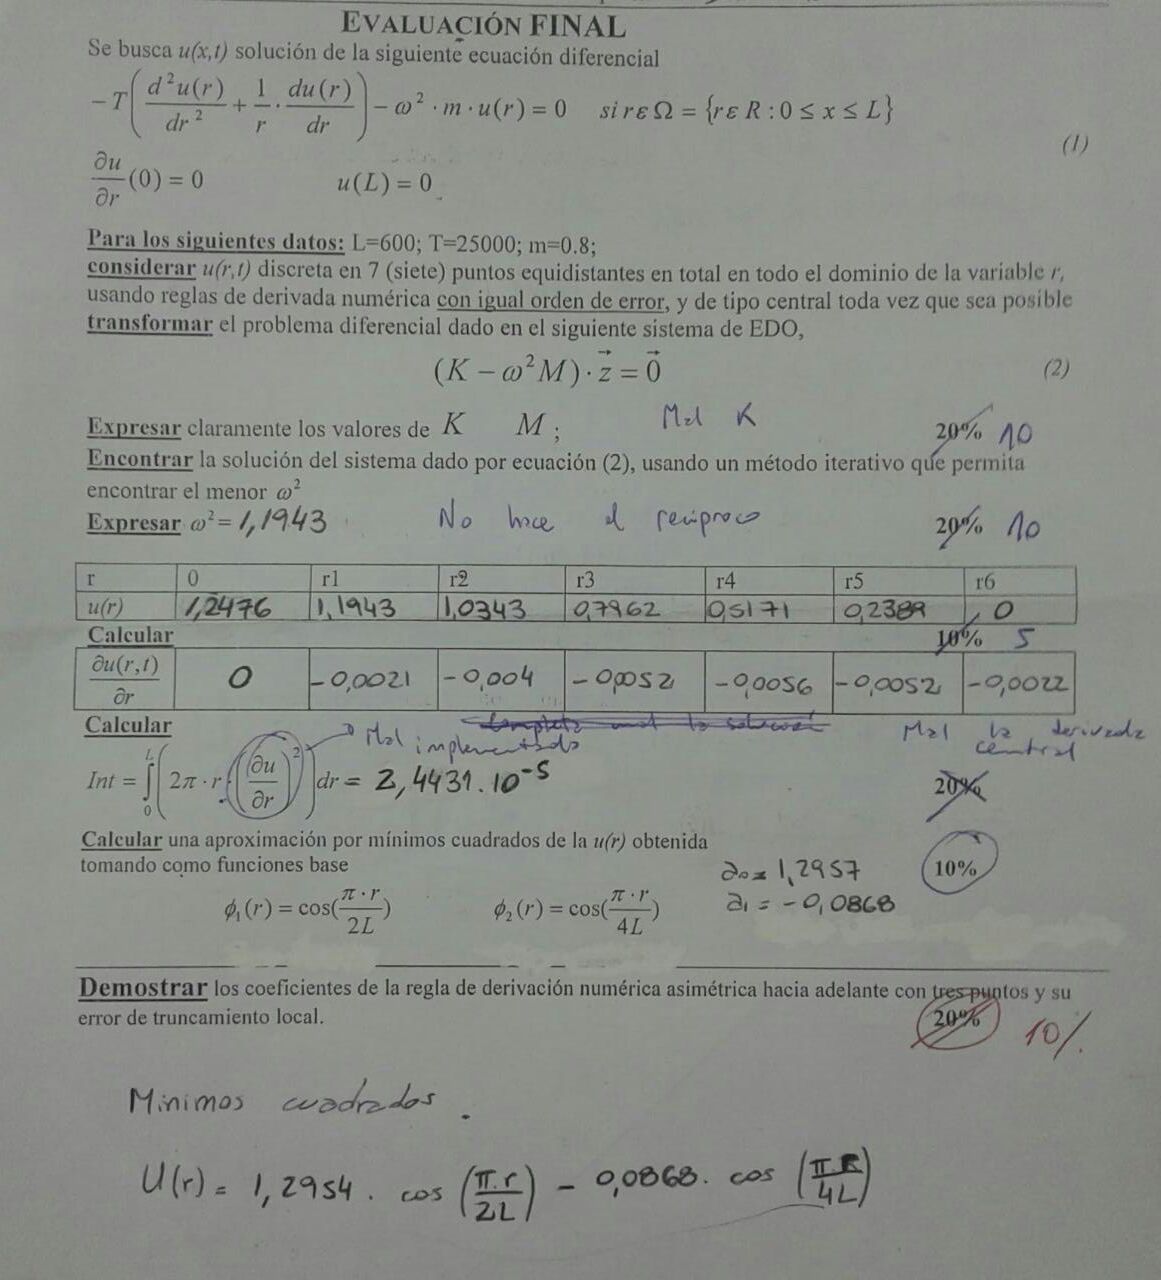 EVALUACIÓN FINAL
Se busca u(x,t) solución de la siguiente ecuación diferencial
-T( d²u(r)/dr² + 1/r · du(r)/dr ) - ω² · m · u(r) = 0 si r ε Ω = {r ε R : 0 ≤ x ≤ L}
(1)
∂u/∂r (0) = 0 u(L) = 0
Para los siguientes datos: L=600; T=25000; m=0.8;
considerar u(r,t) discreta en 7 (siete) puntos equidistantes en total en todo el dominio de la variable r,
usando reglas de derivada numérica con igual orden de error, y de tipo central toda vez que sea posible
transformar el problema diferencial dado en el siguiente sistema de EDO,
(K - ω²M) · z⃗ = 0⃗ (2)
Mal K
Expresar claramente los valores de K M ; 20% 10
Encontrar la solución del sistema dado por ecuación (2), usando un método iterativo que permita
encontrar el menor ω²
Expresar ω² = 1,1943 No hace el recíproco 20% 10
r 0 r1 r2 r3 r4 r5 r6
u(r) 1,2476 1,1943 1,0343 0,7962 0,5171 0,2389 0
Calcular 10% 5
∂u(r,t)/∂r 0 -0,0021 -0,004 -0,0052 -0,0056 -0,0052 -0,0022
Calcular
Mal implementado
Mal la derivada central
Int = ∫₀ᴸ ( 2π · r · ( (∂u/∂r)² ) ) dr = 2,4431.10⁻⁵ 20%
Calcular una aproximación por mínimos cuadrados de la u(r) obtenida
tomando como funciones base
a₀ = 1,2957 10%
a₁ = -0,0868
ϕ₁(r) = cos(π·r/2L) ϕ₂(r) = cos(π·r/4L)
Demostrar los coeficientes de la regla de derivación numérica asimétrica hacia adelante con tres puntos y su
error de truncamiento local. 20% 10%
Minimos cuadrados.
U(r) = 1,2954 . cos (π.r/2L) - 0,0868. cos (πR/4L)